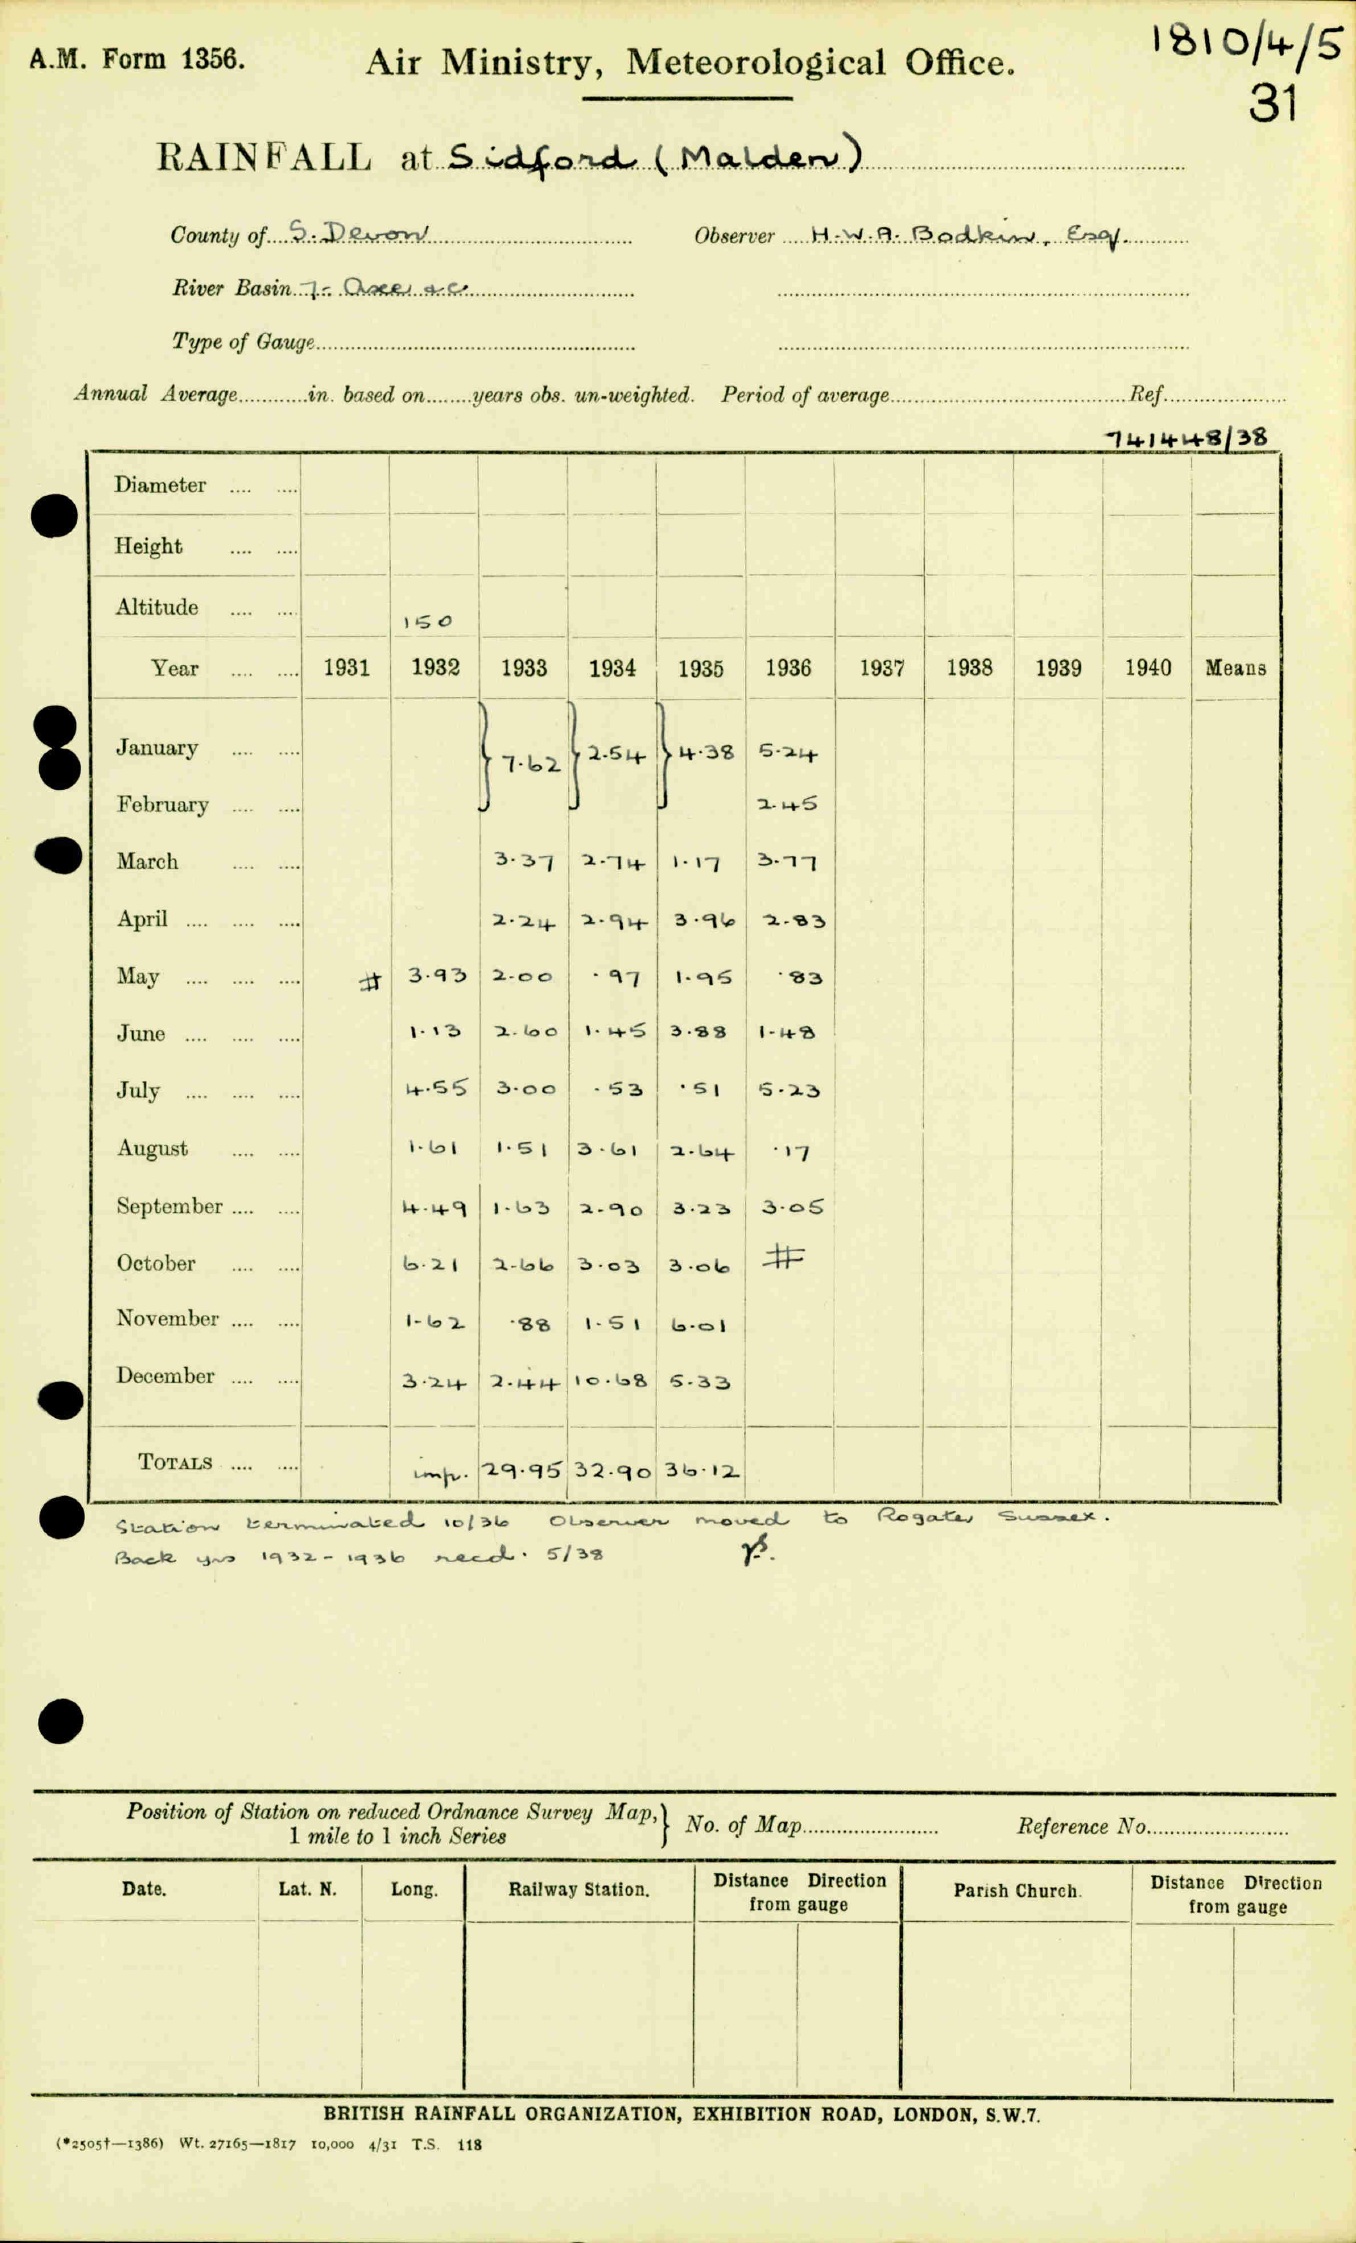 A.M. Form 1356.
Air Ministry, Meteorological Office.
1810/4/5
31
RAINFALL at Sidford (Malden)
County of S. Devon Observer H.W.A. Bodkin, Esq.
River Basin 7- Axe &c.
Type of Gauge
Annual Average in. based on years obs. un-weighted. Period of average Ref.
741448/38
Diameter
Height
Altitude 150
Year 1931 1932 1933 1934 1935 1936 1937 1938 1939 1940 Means
January 7.62 2.54 4.38 5.24
February 2.45
March 3.37 2.74 1.17 3.77
April 2.24 2.94 3.96 2.83
May # 3.93 2.00 .97 1.95 .83
June 1.13 2.60 1.45 3.88 1.48
July 4.55 3.00 .53 .51 5.23
August 1.61 1.51 3.61 2.64 .17
September 4.49 1.63 2.90 3.23 3.05
October 6.21 2.66 3.03 3.06 #
November 1.62 .88 1.51 6.01
December 3.24 2.44 10.68 5.33
TOTALS imp. 29.95 32.90 36.12
Station terminated 10/36 Observer moved to Rogate, Sussex.
Back yrs 1932-1936 recd. 5/38
Position of Station on reduced Ordnance Survey Map, } No. of Map Reference No.
1 mile to 1 inch Series
Date. Lat. N. Long. Railway Station. Distance Direction from gauge Parish Church. Distance Direction from gauge
BRITISH RAINFALL ORGANIZATION, EXHIBITION ROAD, LONDON, S.W.7.
(*2505†—1386) Wt. 27165—1817 10,000 4/31 T.S. 118